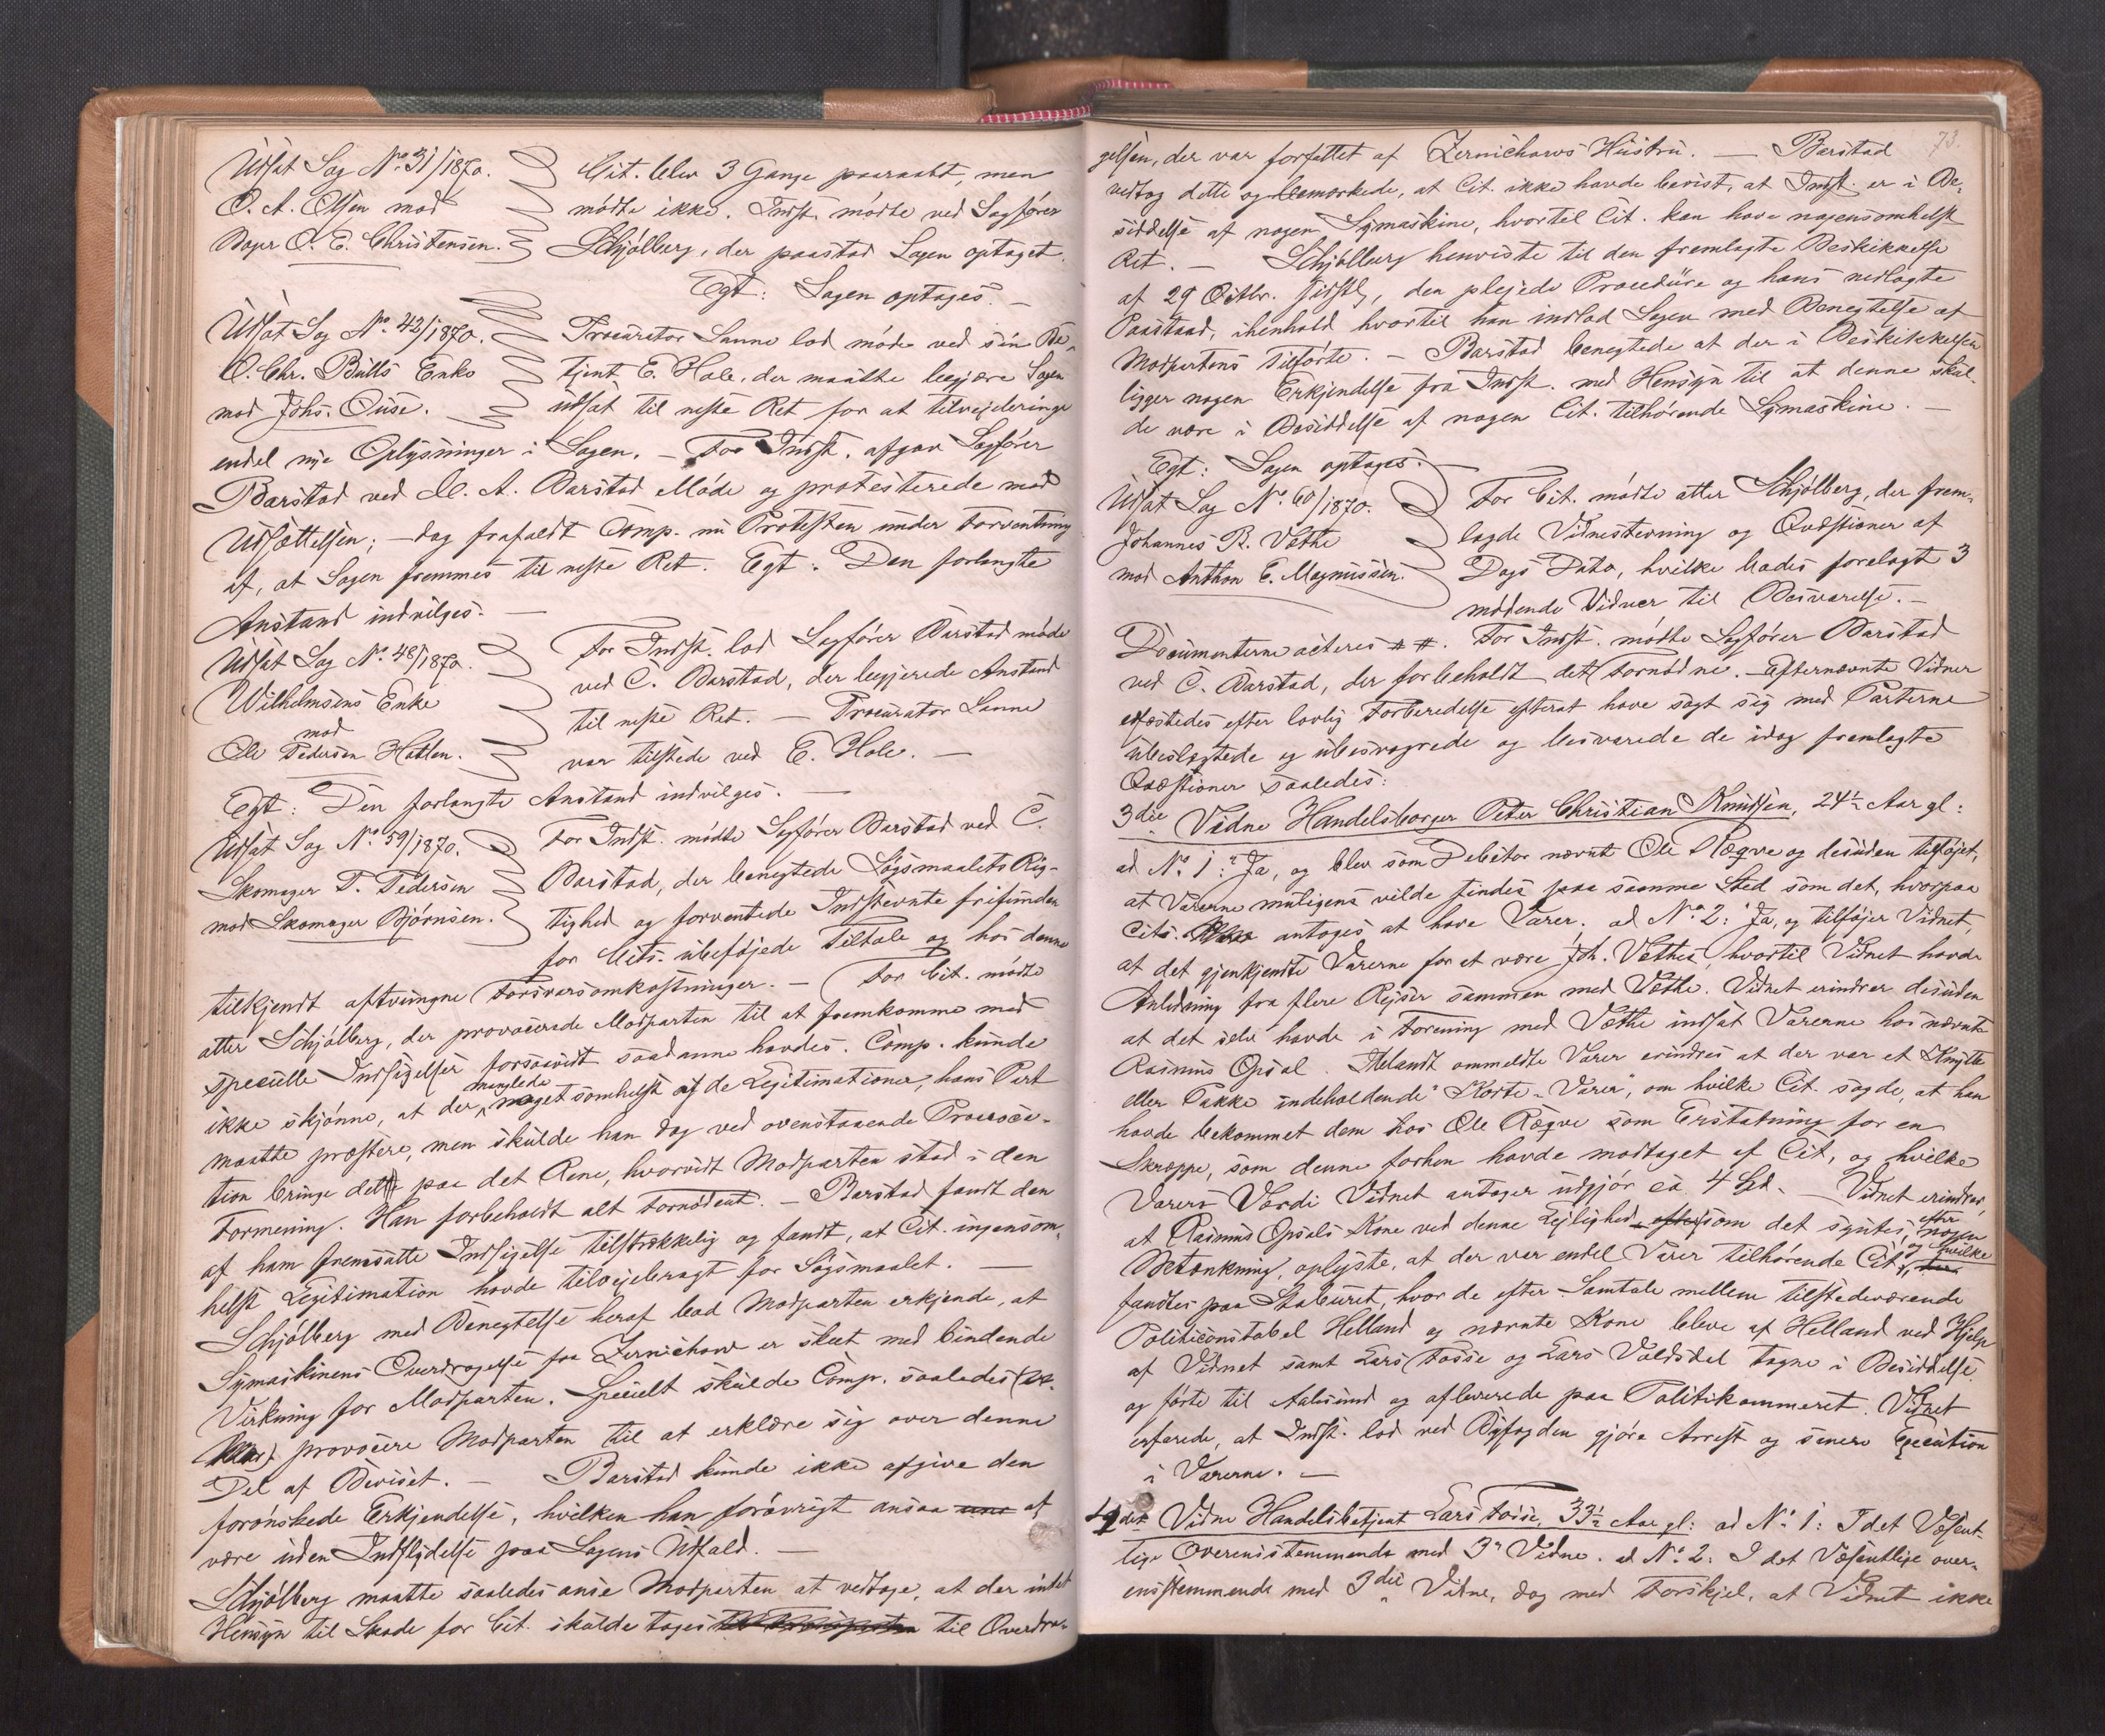 Udsat Sag No. 31/1870.
O. A. Olsen mod
Bager O. E. Christensen.
Cit. blev 3 Gange paaraabt, men
mödte ikke. Indst. mödte ved Sagförer
Schjölberg, der paastod Sagen optaget.
Egt: Sagen optages. —
Udsat Sag No. 42/1870.
O. Chr. Bulls Enke
mod Johs. Ouse.
Procurator Sanne lod möde ved sin Be-
tjent E. Hole, der maatte begjære Sagen
udsat til neste Ret for at tilvejebringe
endel nye Oplysninger i Sagen. — For Indst. afgav Sagförer
Barstad ved M. A. Barstad Möde og protesterede mod
Udsættelsen; — dog frafaldt Comp. nu Protesten under Forventning
af, at Sagen fremmes til neste Ret. Egt: Den forlangte
Anstand indvilges. —
Udsat Sag No. 48/1870.
Wilhelmsens Enke
mod
Ole Pedersen Hatlen.
For Indst. lod Sagförer Barstad möde
ved C. Barstad, der begjerede Anstand
til neste Ret. — Procurator Sanne
var tilstede ved E. Hole. —
Egt: Den forlangte Anstand indvilges. —
Udsat Sag No. 59/1870.
Skomager P. Pedersen
mod Skomager Björnsen.
For Indst. mödte Sagförer Barstad ved C.
Barstad, der benegtede Sögsmaalets Rig-
tighed og forventede Indstevnte frifunden
for Cits. ubeföjede Tiltale og hos denne
tilkjendt aftvungne Forsvarsomkostninger. — For Cit. mödte
atter Schjölberg, der provocerede Modparten til at fremkomme med
specielle Indsigelser forsaavidt saadanne havdes. Comp. kunde
ikke skjönne, at der manglede noget somhelst af de Legitimationer, hans Part
maatte præstere, men skulde han dog ved ovenstaaende Provoca-
tion bringe dette paa det Rene, hvorvidt Modparten stod i den
Formening. Han forbeholdt alt Fornödent. — Barstad fandt den
af ham fremsatte Indsigelse tilstrækkelig og fandt, at Cit. ingensom-
helst Legitimation havde tilvejebragt for Sögsmaalet. —
Schjölberg med Benegtelse heraf bad Modparten erkjende, at
Symaskinens Overdragelse fra Zernichow er skeet med bindende
Virkning for Modparten. Specielt skulde Comp. saaledes
provocere Modparten til at erklære sig over denne
Del af Beviset. — Barstad kunde ikke afgive den
forönskede Erkjendelse, hvilken han forövrigt ansaa at
være uden Indflydelse paa Sagens Udfald. —
Schjölberg maatte saaledes anse Modparten at vedtage, at der intet
Hensyn til Skade for Cit. skulde tages til Overdra-
73.
gelsen, der var forfattet af Zernichows Hustru. — Barstad
vedtog dette og bemærkede, at Cit. ikke havde bevist, at Indst. er i Be-
siddelse af nogen Symaskine, hvortil Cit. kan have nogensomhelst
Ret. — Schjölberg henviste til den fremlagte Beskikkelse
af 29 Octbr. sidstl., den plejede Procedüre og hans nedlagte
Paastand, ihenhold hvortil han indlod Sagen med Benegtelse af
Modpartens Tilförte. — Barstad benegtede at der i Beskikkelsen
ligger nogen Erkjendelse fra Indst. med Hensyn til at denne skul-
de være i Besiddelse af nogen Cit. tilhörende Symaskine. —
Egt: Sagen optages. —
Udsat Sag No. 60/1870.
Johannes R. Vathe
mod Anthon E. Magnussen.
For Cit. mödte atter Schjölberg, der frem-
lagde Vidnestevning og Qvæstioner af
Dags Dato, hvilke bades forelagt 3
mödende Vidner til Besvarelse. —
Documenterne acteres # #. For Indst. mödte Sagförer Barstad
ved C. Barstad, der forbeholdt det Fornödne. Efternævnte Vidner
edfæstedes efter lovlig Forberedelse efterat have sagt sig med Parterne
ubeslægtede og ubesvogrede og besvarede de idag fremlagte
Qvæstioner saaledes:
3die Vidne Handelsborger Peter Christian Knudsen, 24½ Aar gl:
ad No. 1: Ja, og blev som Debitor nævnt Ole Rægve og desuden tilföjet,
at Varerne muligens vilde findes paa samme Sted som det, hvorpaa
Cits. antoges at have Varer. ad No. 2: Ja, og tilföjer Vidnet,
at det gjenkjendte Varerne for at være Joh. Vathes, hvortil Vidnet havde
Anledning fra flere Rejser sammen med Vathe. Vidnet erindrer desuden
at det selv havde i Forening med Vathe indsat Varerne hos nævnte
Rasmus Opsal. Iblandt ommeldte Varer erindres at der var et Knytte
eller Pakke indeholdende "Korte-Varer", om hvilke Cit. sagde, at han
havde bekommet dem hos Ole Rægve som Erstatning for en
Skræppe, som denne forhen havde modtaget af Cit., og hvilke
Varers Værdi Vidnet antager udgjör ca 4 Spd. — Vidnet erindrer,
at Rasmus Opsals Kone ved denne Lejlighed, som det syntes, efter nogen
Betænkning, oplyste, at der var endel Varer tilhörende Cit., og hvilke
fandtes paa Stabburet, hvor de efter Samtale mellem tilstedeværende
Politiconstabel Helland og nævnte Kone bleve af Helland ved Hjelp
af Vidnet samt Lars Fosse og Lars Voldsdal tagne i Besiddelse
og förte til Aalesund og afleverede paa Politikammeret. Vidnet
erfarede, at Indst. lod ved Byfogden gjöre Arrest og senere Execution
i Varerne. —
4de Vidne Handelsbetjent Lars Fosse, 33½ Aar gl: ad No. 1: I det Væsent-
lige Overensstemmende med 3die Vidne. ad No. 2: I det Væsentlige over-
ensstemmende med 3die Vidne, dog med Forskjel, at Vidnet ikke